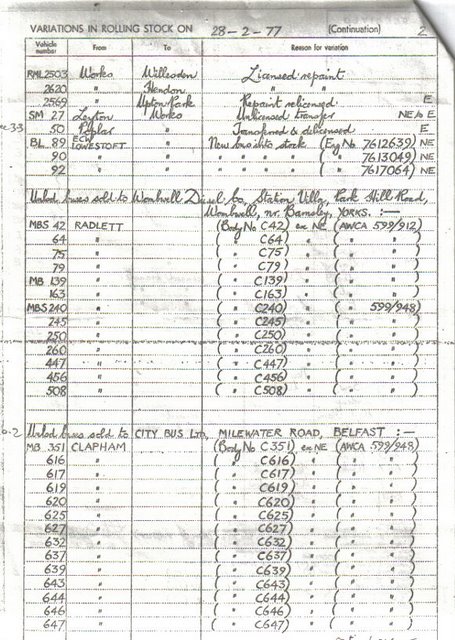 VARIATIONS IN ROLLING STOCK ON 28-2-77 (Continuation) 2
Vehicle number From To Reason for variation
RML2503 Works Willesden Licensed repaint
2620 " Hendon "
2569 " Upton Park Repaint relicensed E
SM 27 Leyton Works Unlicensed transfer NE to E
50 Poplar " Transferred & delicensed E
BL 89 ECW LOWESTOFT New bus into stock (Eng No 7612639) NE
90 " " ( " 7613049) NE
92 " " ( " 7617064) NE
Unlcd buses sold to Wombwell Diesel Co, Station Villa, Park Hill Road,
Wombwell, nr. Barnsley, YORKS. :—
MBS 42 RADLETT (Body No C42) ex NE (AWCA 599/912)
64 " ( " C64) " ( " " )
75 " ( " C75) " ( " " )
79 " ( " C79) " ( " " )
MB 139 " ( " C139) " ( " " )
163 " ( " C163) " ( " " )
MBS240 " ( " C240) " ( " 599/948)
245 " ( " C245) " ( " " )
250 " ( " C250) " ( " " )
260 " ( " C260) " ( " " )
447 " ( " C447) " ( " " )
456 " ( " C456) " ( " " )
508 " ( " C508) " ( " " )
Unlcd buses sold to CITY BUS LTD, MILEWATER ROAD, BELFAST :—
MB 351 CLAPHAM (Body No C351) ex NE (AWCA 599/948)
616 " ( " C616) " ( " " )
617 " ( " C617) " ( " " )
619 " ( " C619) " ( " " )
620 " ( " C620) " ( " " )
625 " ( " C625) " ( " " )
627 " ( " C627) " ( " " )
632 " ( " C632) " ( " " )
637 " ( " C637) " ( " " )
639 " ( " C639) " ( " " )
643 " ( " C643) " ( " " )
644 " ( " C644) " ( " " )
646 " ( " C646) " ( " " )
647 " ( " C647) " ( " " )